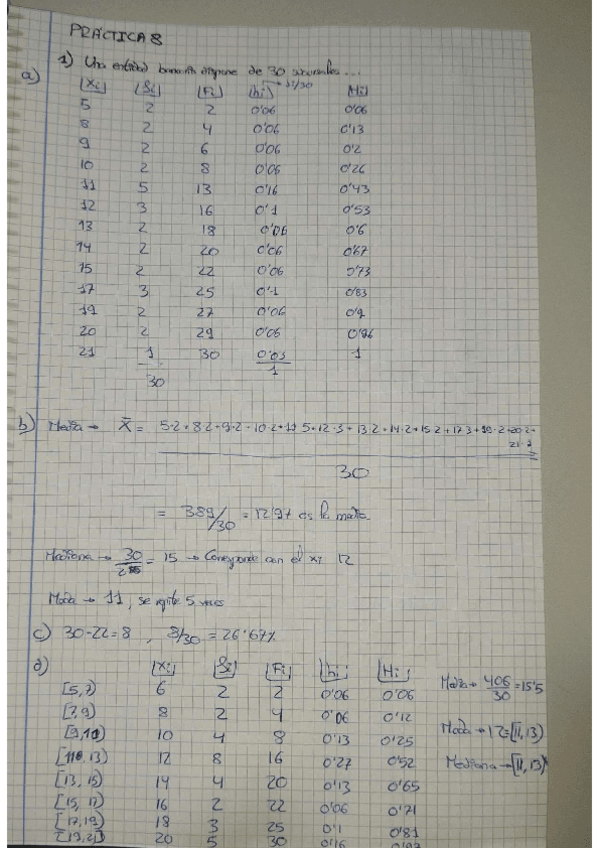 PRÁCTICA 8
1) Una entidad bancaria dispone de 30 sucursales...
a) |Xi| |fi| |Fi| |hi| → fi/30 |Hi|
5 2 2 0'06 0'06
8 2 4 0'06 0'13
9 2 6 0'06 0'2
10 2 8 0'06 0'26
11 5 13 0'16 0'43
12 3 16 0'1 0'53
13 2 18 0'06 0'6
14 2 20 0'06 0'67
15 2 22 0'06 0'73
17 3 25 0'1 0'83
19 2 27 0'06 0'9
20 2 29 0'06 0'96
21 1 30 0'03 1
30 1
b) Media → X̄ = 5·2+8·2+9·2+10·2+11·5+12·3+13·2+14·2+15·2+17·3+19·2+20·2+
21·1
30
= 389/30 = 12'97 es la media.
Mediana → 30/2 = 15 → Corresponde con el xi 12
Moda → 11, se repite 5 veces
c) 30-22=8, 8/30 = 26'67%
d) |Xi| |fi| |Fi| |hi| |Hi|
[5,7) 6 2 2 0'06 0'06 Media → 406/30 = 15'5
[7,9) 8 2 4 0'06 0'12
[9,11) 10 4 8 0'13 0'25 Moda → 12=[11,13)
[11,13) 12 8 16 0'27 0'52 Mediana → [11,13)
[13,15) 14 4 20 0'13 0'65
[15,17) 16 2 22 0'06 0'71
[17,19) 18 3 25 0'1 0'81
[19,21] 20 5 30 0'16 0'97